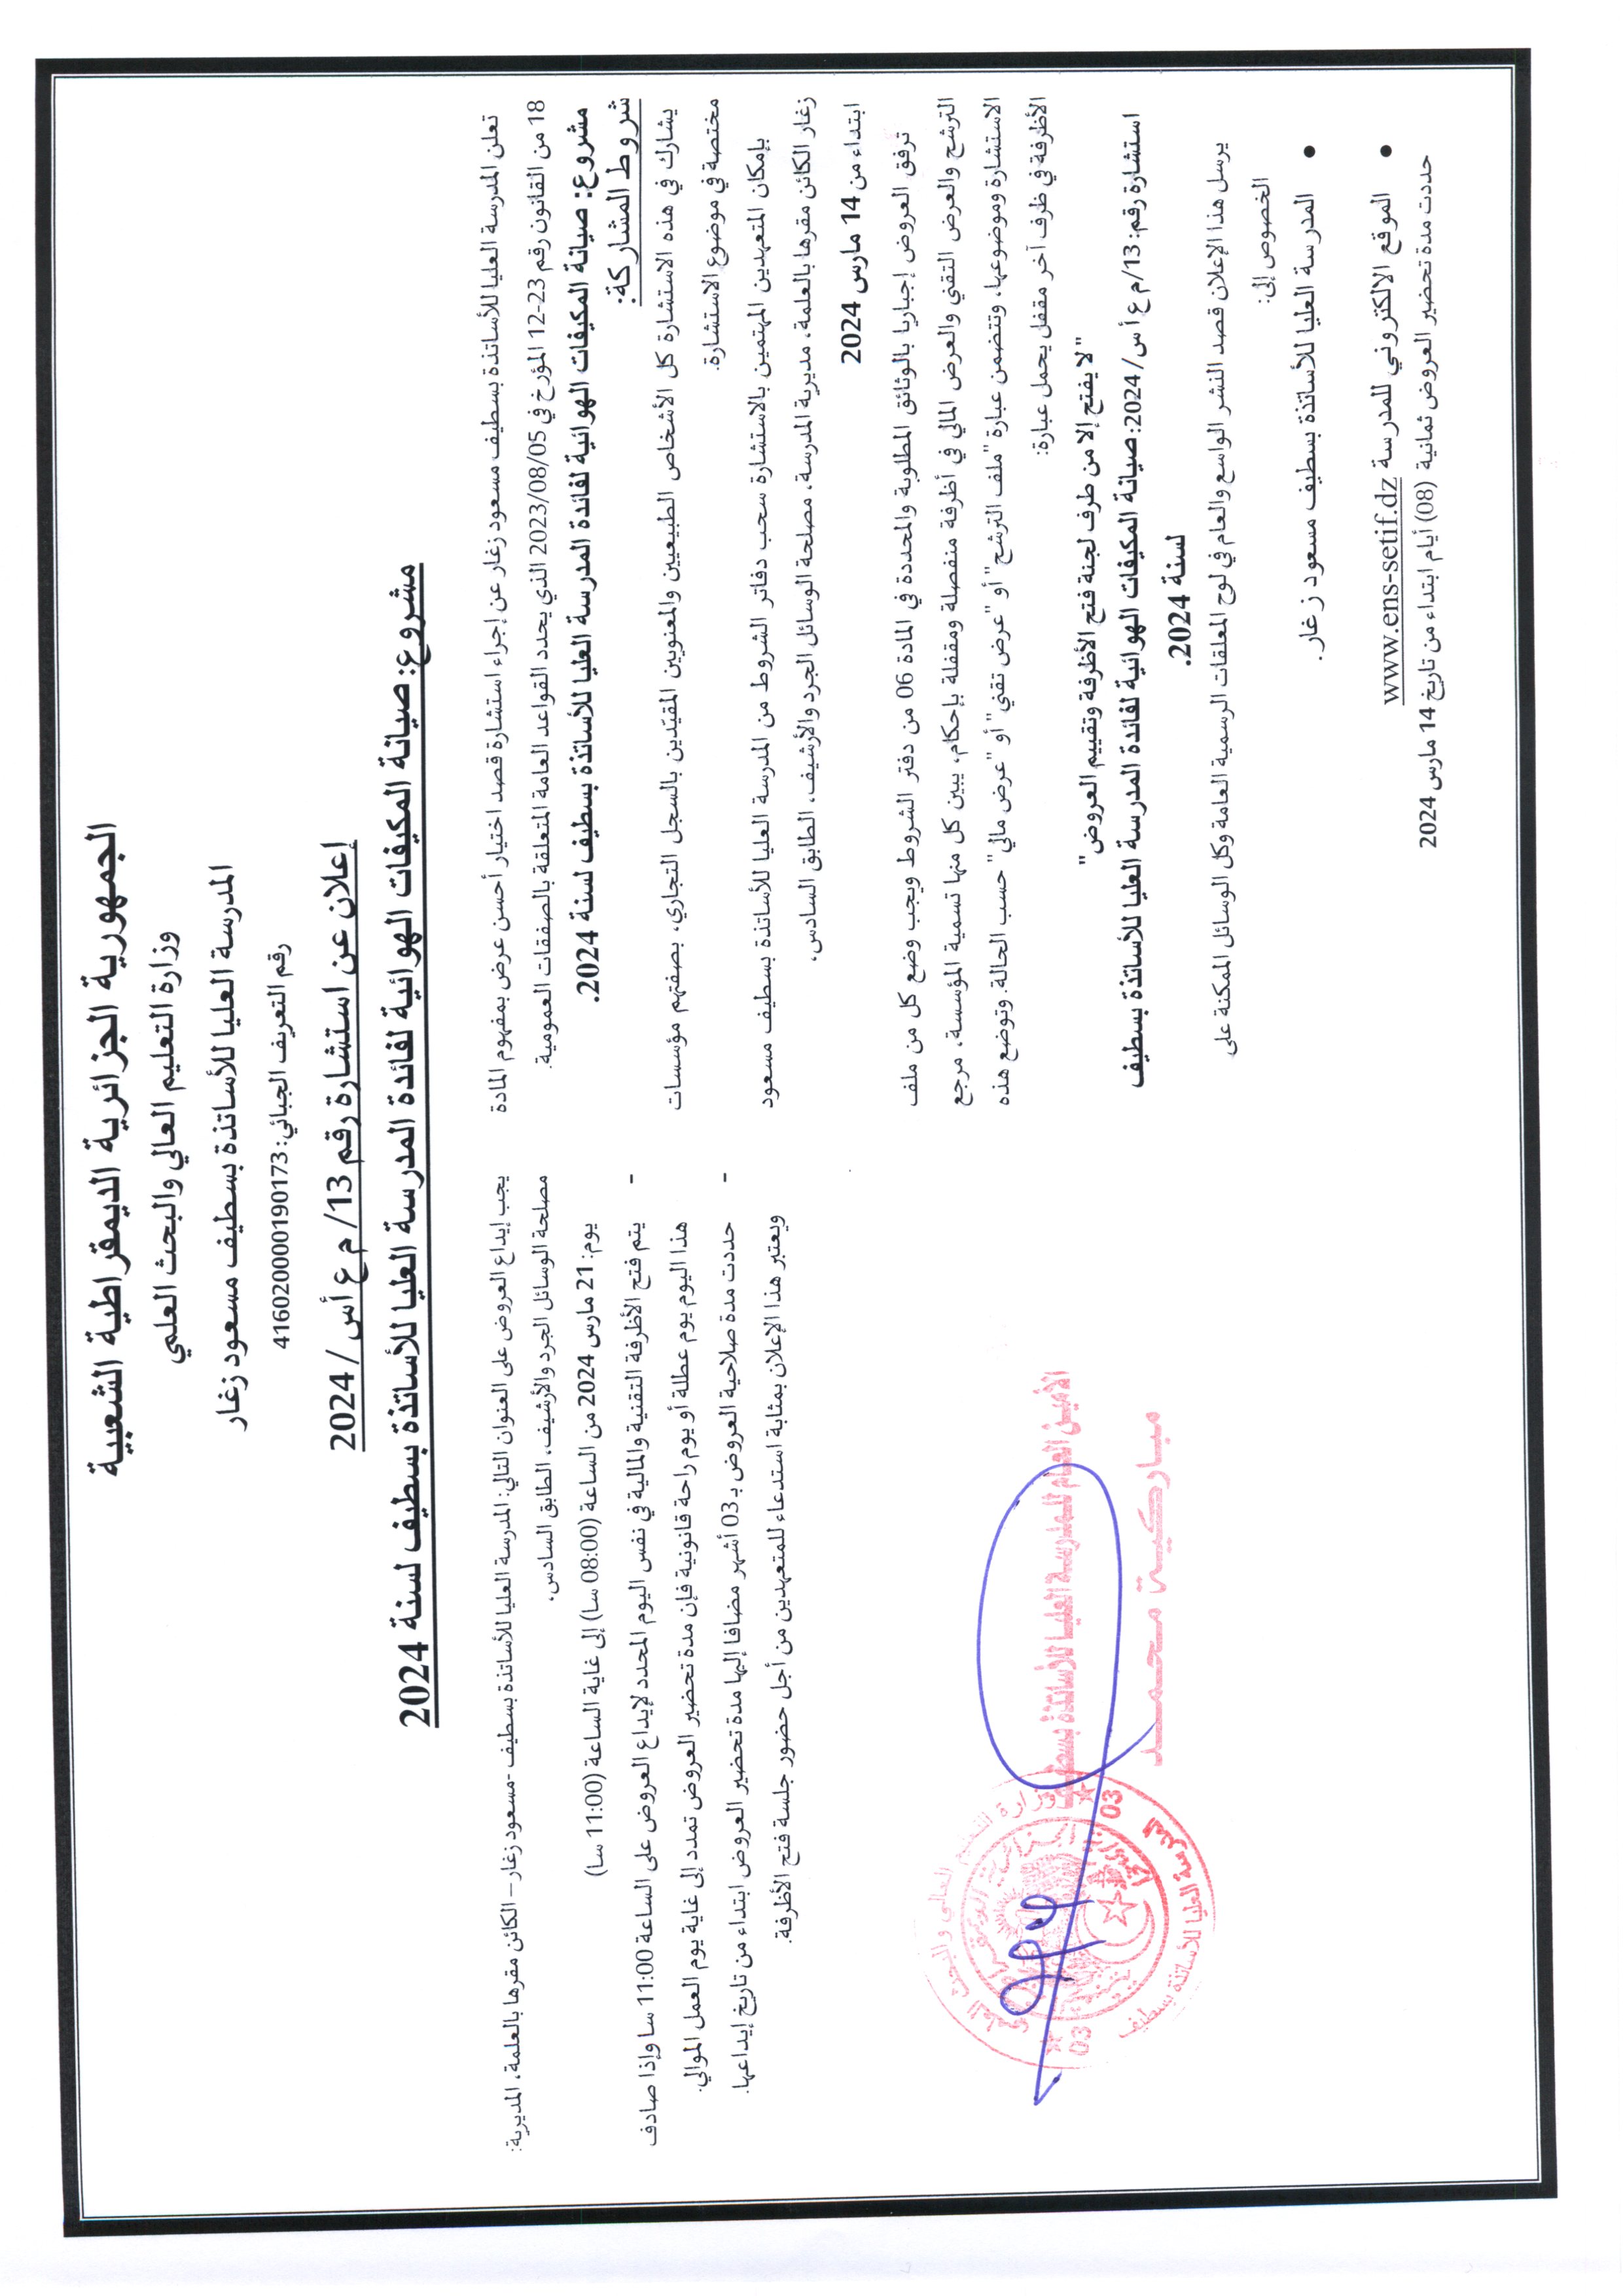 الجمهورية الجزائرية الديمقراطية الشعبية
وزارة التعليم العالي والبحث العلمي
المدرسة العليا للأساتذة بسطيف مسعود زغار
رقم التعريف الجبائي: 416020000190173
إعلان عن استشارة رقم 13/ م ع أ س / 2024
مشروع: صيانة المكيفات الهوائية لفائدة المدرسة العليا للأساتذة بسطيف لسنة 2024
تعلن المدرسة العليا للأساتذة بسطيف مسعود زغار عن إجراء استشارة قصد اختيار أحسن عرض بمفهوم المادة
18 من القانون رقم 23-12 المؤرخ في 2023/08/05 الذي يحدد القواعد العامة المتعلقة بالصفقات العمومية.
مشروع: صيانة المكيفات الهوائية لفائدة المدرسة العليا للأساتذة بسطيف لسنة 2024.
شروط المشاركة:
يشارك في هذه الاستشارة كل الأشخاص الطبيعيين والمعنويين المقيّدين بالسجل التجاري، بصفتهم مؤسسات
مختصة في موضوع الاستشارة.
بإمكان المتعهدين المهتمين بالاستشارة سحب دفاتر الشروط من المدرسة العليا للأساتذة بسطيف مسعود
زغار الكائن مقرها بالعلمة، مديرية المدرسة، مصلحة الوسائل الجرد والأرشيف، الطابق السادس،
ابتداء من 14 مارس 2024
ترفق العروض إجباريا بالوثائق المطلوبة والمحددة في المادة 06 من دفتر الشروط ويجب وضع كل من ملف
الترشح والعرض التقني والعرض المالي في أظرفة منفصلة ومقفلة بإحكام، يبين كل منها تسمية المؤسسة، مرجع
الاستشارة وموضوعها، وتتضمن عبارة "ملف الترشح" أو "عرض تقني" أو "عرض مالي" حسب الحالة. وتوضع هذه
الأظرفة في ظرف آخر مقفل يحمل عبارة:
"لا يفتح إلا من طرف لجنة فتح الأظرفة وتقييم العروض"
استشارة رقم: 13/م ع أ س/2024: صيانة المكيفات الهوائية لفائدة المدرسة العليا للأساتذة بسطيف
لسنة 2024.
يرسل هذا الإعلان قصد النشر الواسع والعام في لوح المعلقات الرسمية العامة وكل الوسائل الممكنة على
الخصوص إلى:
• المدرسة العليا للأساتذة بسطيف مسعود زغار.
• الموقع الالكتروني للمدرسة www.ens-setif.dz
حددت مدة تحضير العروض ثمانية (08) أيام ابتداء من تاريخ 14 مارس 2024
يجب إيداع العروض على العنوان التالي: المدرسة العليا للأساتذة بسطيف -مسعود زغار – الكائن مقرها بالعلمة، المديرية:
مصلحة الوسائل الجرد والأرشيف، الطابق السادس.
يوم: 21 مارس 2024 من الساعة (08:00 سا) إلى غاية الساعة (11:00 سا)
- يتم فتح الأظرفة التقنية والمالية في نفس اليوم المحدد لإيداع العروض على الساعة 11:00 سا وإذا صادف
هذا اليوم يوم عطلة أو يوم راحة قانونية فإن مدة تحضير العروض تمدد إلى غاية يوم العمل الموالي.
- حددت مدة صلاحية العروض بـ 03 أشهر مضافا إليها مدة تحضير العروض ابتداء من تاريخ إيداعها.
ويعتبر هذا الإعلان بمثابة استدعاء للمتعهدين من أجل حضور جلسة فتح الأظرفة.
الأمين العام للمدرسة العليا للأساتذة بسطيف
مباركية محمد
وزارة التعليم العالي والبحث العلمي
المدرسة العليا للأساتذة بسطيف
03
03